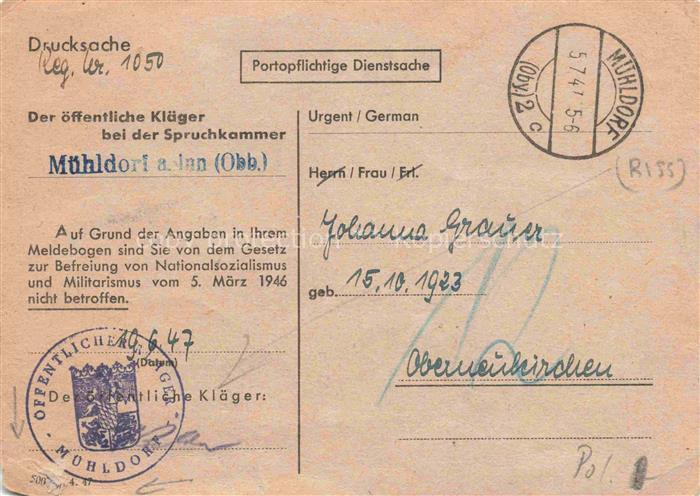 Drucksache
Reg. Nr. 1050
Portopflichtige Dienstsache
MÜHLDORF
5.7.47. 5-6
(Oby.) 2 c
Der öffentliche Kläger
bei der Spruchkammer
Mühldorf a. Inn (Obb.)
Urgent / German
Herrn / Frau / Frl.
(RISS)
Johanna Grauer
geb. 15.10.1923
Oberneukirchen
12
Auf Grund der Angaben in Ihrem
Meldebogen sind Sie von dem Gesetz
zur Befreiung von Nationalsozialismus
und Militarismus vom 5. März 1946
nicht betroffen.
10.6.47
(Datum)
Der öffentliche Kläger:
ÖFFENTLICHER KLÄGER
- MÜHLDORF -
4. 47
Pol.